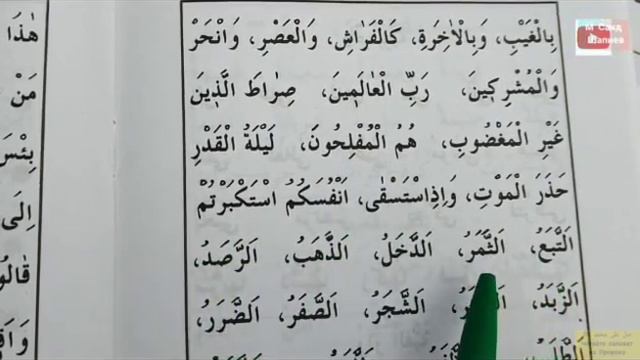 بِالْغَيْبِ، وَبِالْاٰخِرَةِ، كَالْفَرَاشِ، وَالْعَصْرِ، وَانْحَرْ
وَالْمُشْرِكٖينَ، رَبِّ الْعَالَمٖينَ، صِرَاطَ الَّذٖينَ
غَيْرِ الْمَغْضُوبِ، هُمُ الْمُفْلِحُونَ، لَيْلَةُ الْقَدْرِ
حَذَرَ الْمَوْتِ، وَاِذِاسْتَسْقٰى، اَنْفُسَكُمُ اسْتَكْبَرْتُمْ
اَلتَّبَعُ، اَلثَّمَرُ، اَلدَّخَلُ، اَلذَّهَبُ، اَلرَّصَدُ،
اَلزَّبَدُ، اَلشَّجَرُ، اَلصَّفَرُ، اَلضَّرَرُ،
هٰذَا
مَنْ
بِئْسَ
اِلَى
قَالُو
М Саид